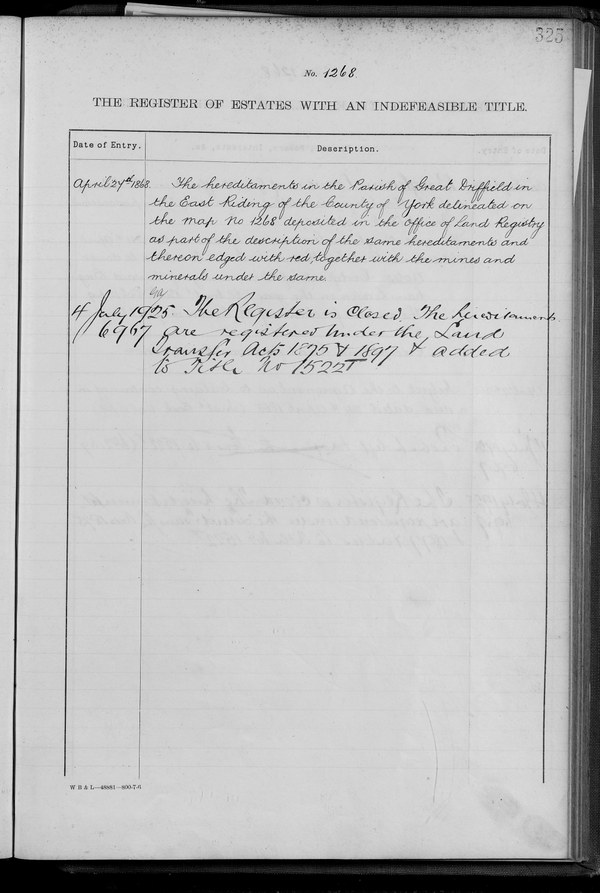 325
No. 1268
THE REGISTER OF ESTATES WITH AN INDEFEASIBLE TITLE.
Date of Entry.
Description.
April 27th 1868.
The hereditaments in the Parish of Great Driffield in
the East Riding of the County of York delineated on
the map No 1268 deposited in the Office of Land Registry
as part of the description of the same hereditaments and
thereon edged with red, together with the mines and
minerals under the same.
4 July 1925. The Register is closed. The hereditaments
6967 are registered under the Land
Transfer Acts 1875 & 1897 & added
to Title No 15221
W B & L—48881—800-7-6